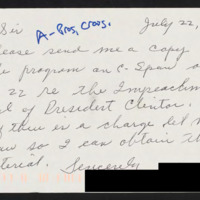 Sir July 22,
A-Pros, Cross.
lease send me a copy
e program on C-Span
22 re the Impeachm
l of President Clinton.
there is a charge let m
w so I can obtain th
terial. Sincerely